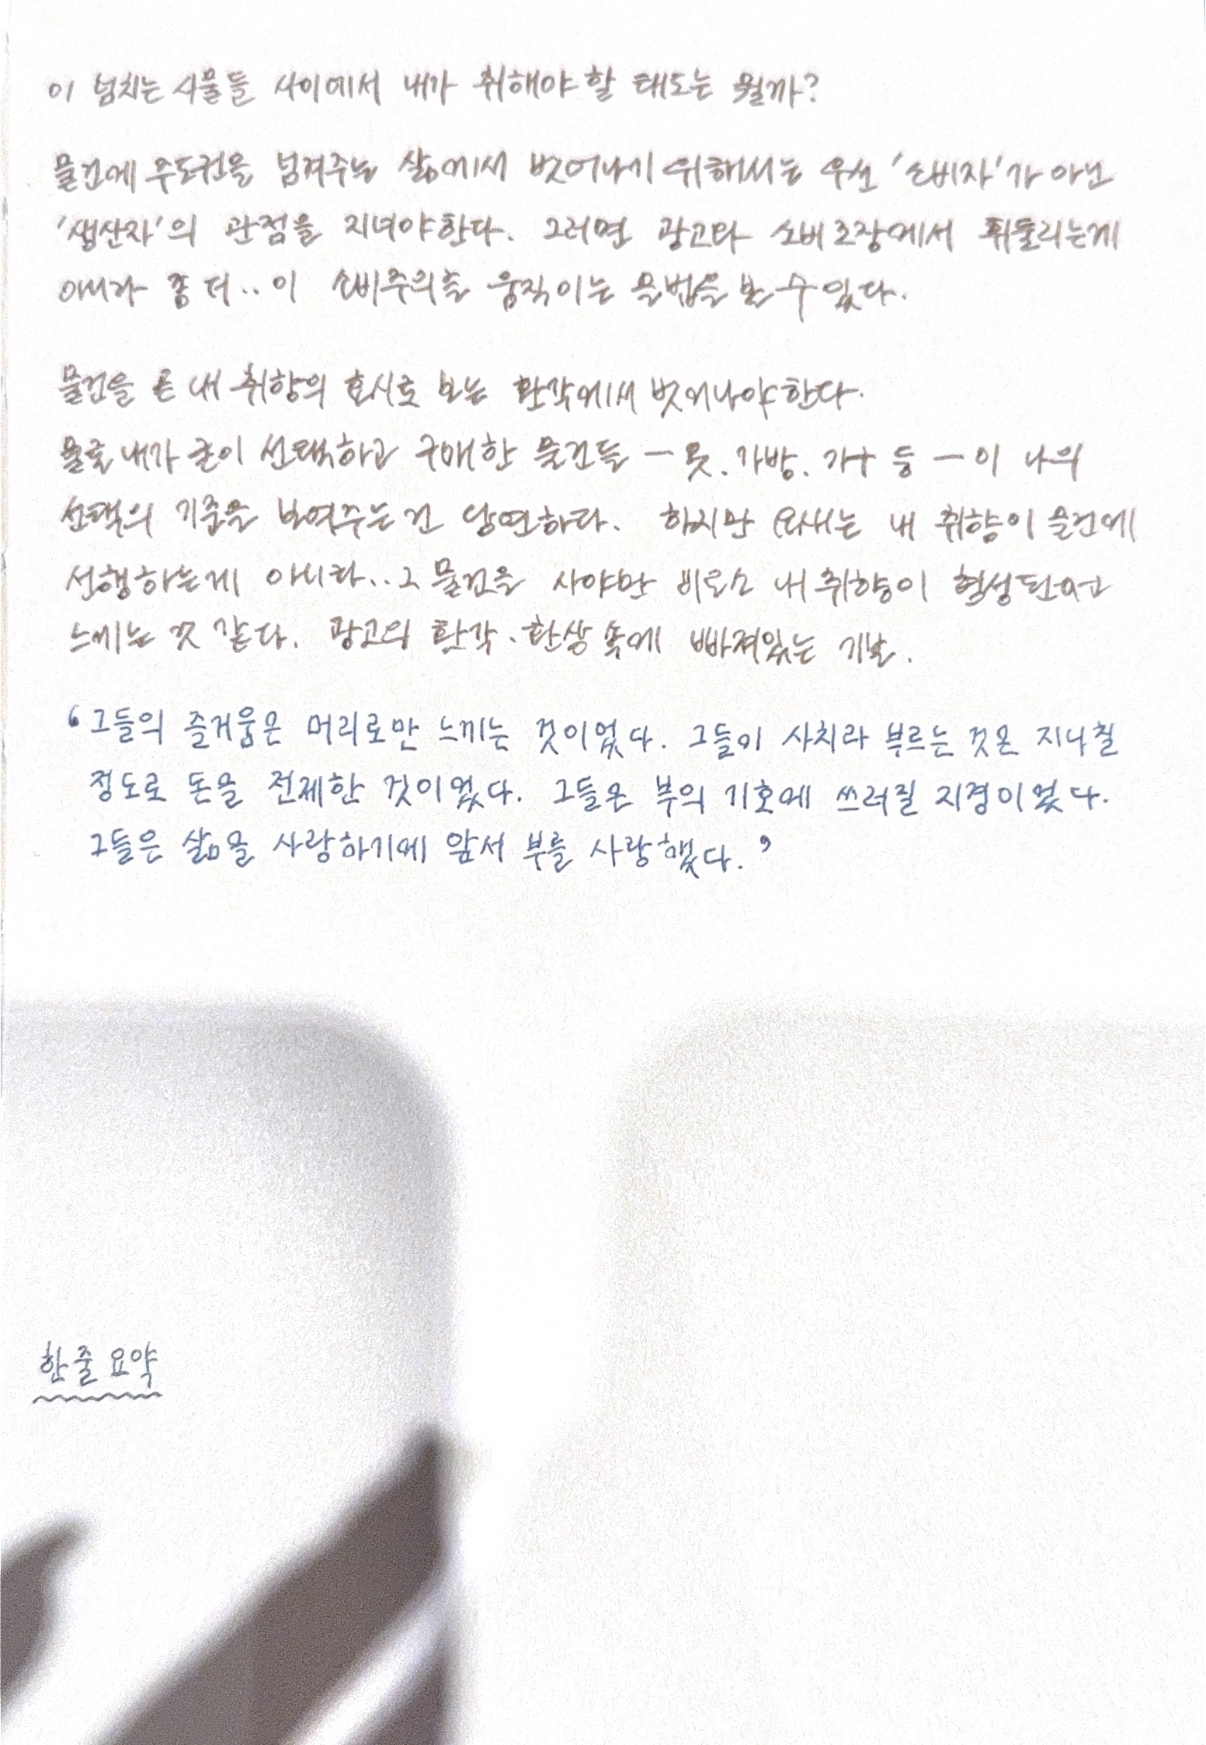 이 넘치는 사물들 사이에서 내가 취해야 할 태도는 뭘까?
물건에 주도권을 넘겨주는 삶에서 벗어나기 위해서는 우선 '소비자'가 아닌
'생산자'의 관점을 지녀야한다. 그러면 광고나 소비 조장에서 휘둘리는게
아니라 좀 더.. 이 소비주의를 움직이는 문법을 볼 수 있다.
물건을 내 취향의 표시로 보는 환각에서 벗어나야한다.
물론 내가 굳이 선택하고 구매한 물건들 — 옷, 가방, 가구 등 — 이 나의
선택의 기준을 보여주는 건 당연하다. 하지만 요새는 내 취향이 물건에
선행하는게 아니라.. 그 물건을 사야만 비로소 내 취향이 형성된다고
느끼는 것 같다. 광고의 환각·환상 속에 빠져있는 기분.
'그들의 즐거움은 머리로만 느끼는 것이었다. 그들이 사치라 부르는 것은 지나칠
정도로 돈을 전제한 것이었다. 그들은 부의 기호에 쓰러질 지경이었다.
그들은 삶을 사랑하기에 앞서 부를 사랑했다.'
한 줄 요약